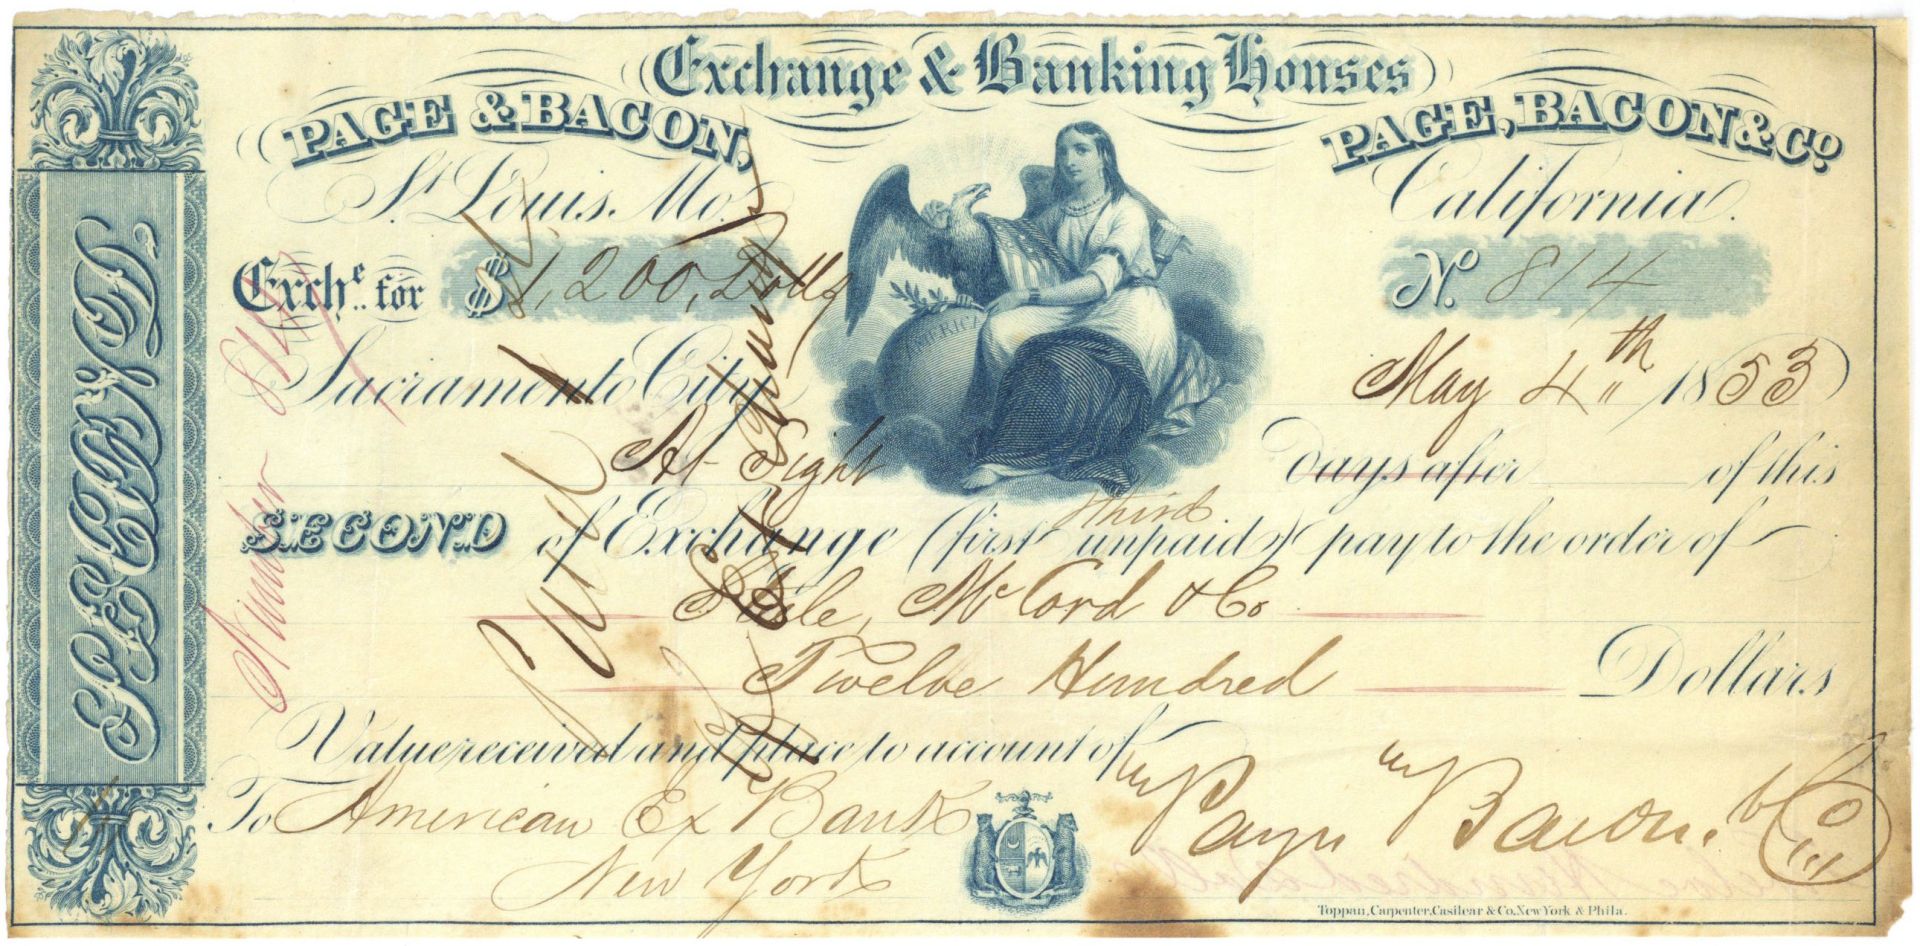 Exchange & Banking Houses
PAGE & BACON,
PAGE, BACON & Co.
St. Louis. Mo.
California.
Exche. for $1,200, Dolls
No. 814
Sacramento City
May 4th 1853
At Sight
Days after of this
third
SECOND of Exchange (first unpaid) pay to the order of
McCord & Co
Twelve Hundred Dollars
Value received and place to account of
To American Ex Bank
New York
Page Bacon. & Co
AMERICA
P. B. & Co.
Number 814
Toppan, Carpenter, Casilear & Co. New York & Phila.